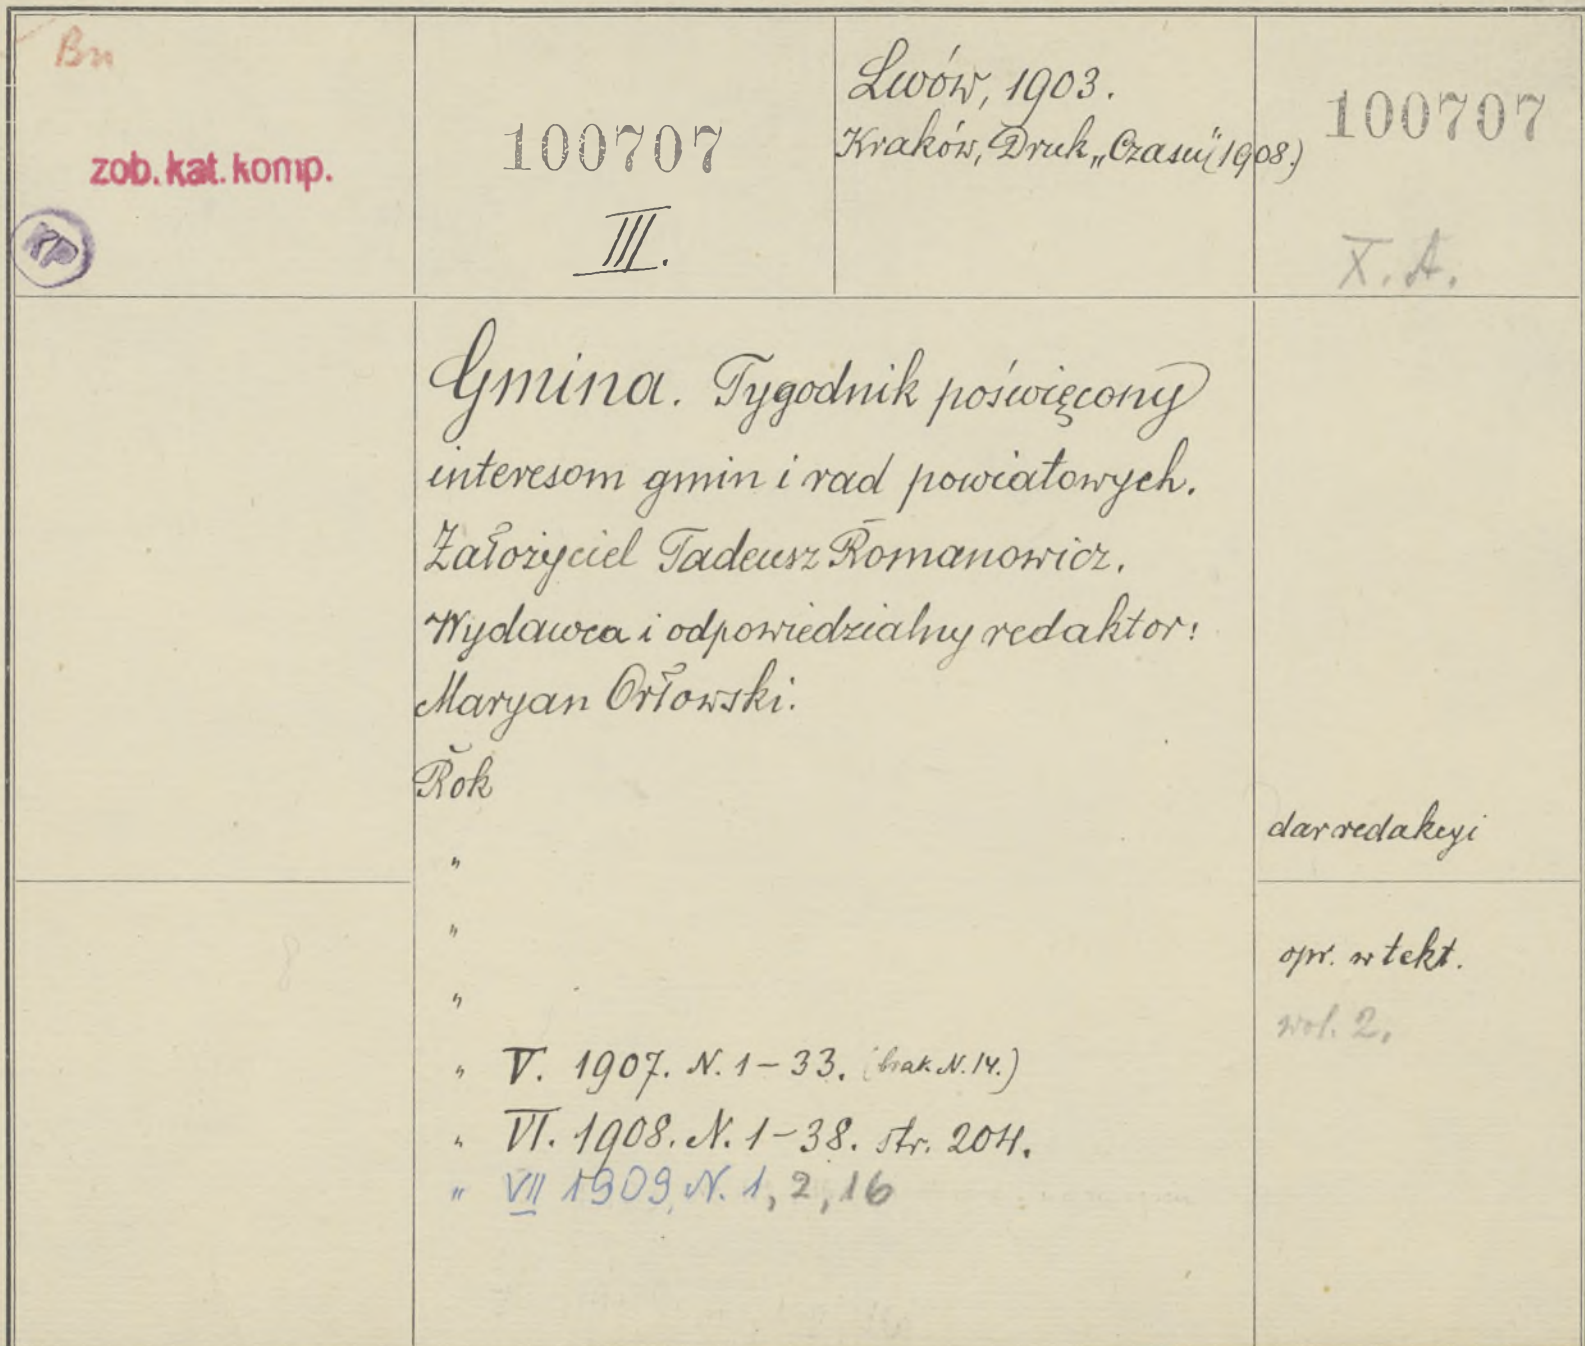 Bn
zob. kat. komp.
KP
100707
III.
Lwów, 1903.
Kraków, Druk „Czasu" (1908.)
100707
X. A.
Gmina. Tygodnik poświęcony
interesom gmin i rad powiatowych.
Założyciel Tadeusz Romanowicz.
Wydawca i odpowiedzialny redaktor:
Maryan Orłowski.
Rok
"
"
"
" V. 1907. N. 1-33. (brak N. 14.)
" VI. 1908. N. 1-38. str. 204.
" VII 1909, N. 1, 2, 16
dar redakcyi
opr. w tekt.
wol. 2.
8